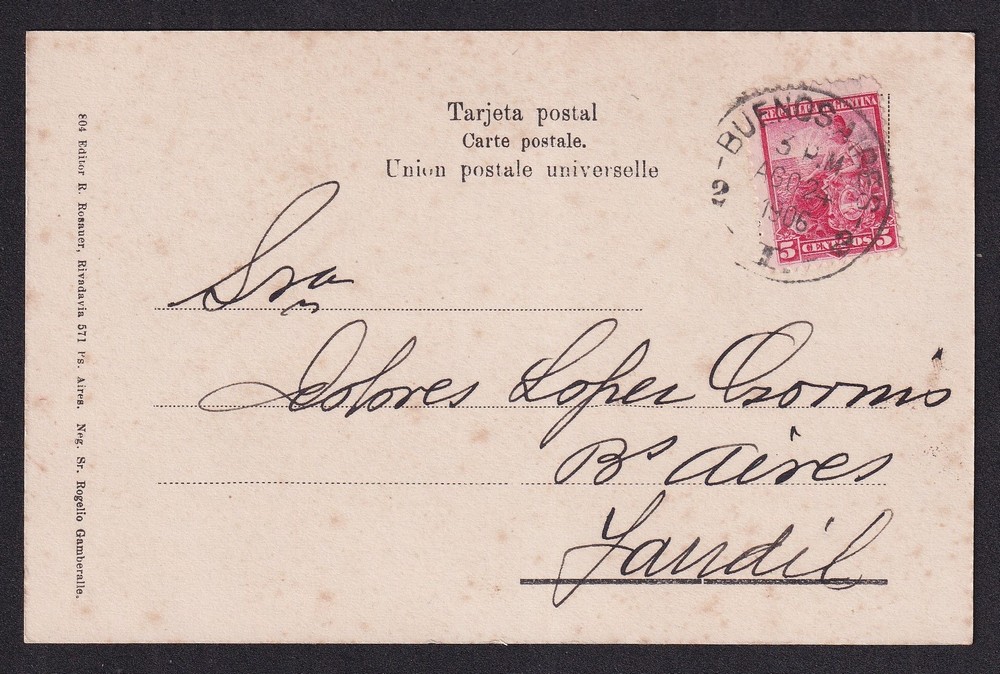 Tarjeta postal
Carte postale.
Union postale universelle
REPUBLICA ARGENTINA
5 CENTAVOS 5
BUENOS AIRES
3 P.M
AGO 24
1906
2
Sra
Dolores Lopez Osornio
Bs Aires
Tandil
804 Editor R. Rosauer, Rivadavia 571 Bs. Aires. Neg. Sr. Rogelio Gamberalle.